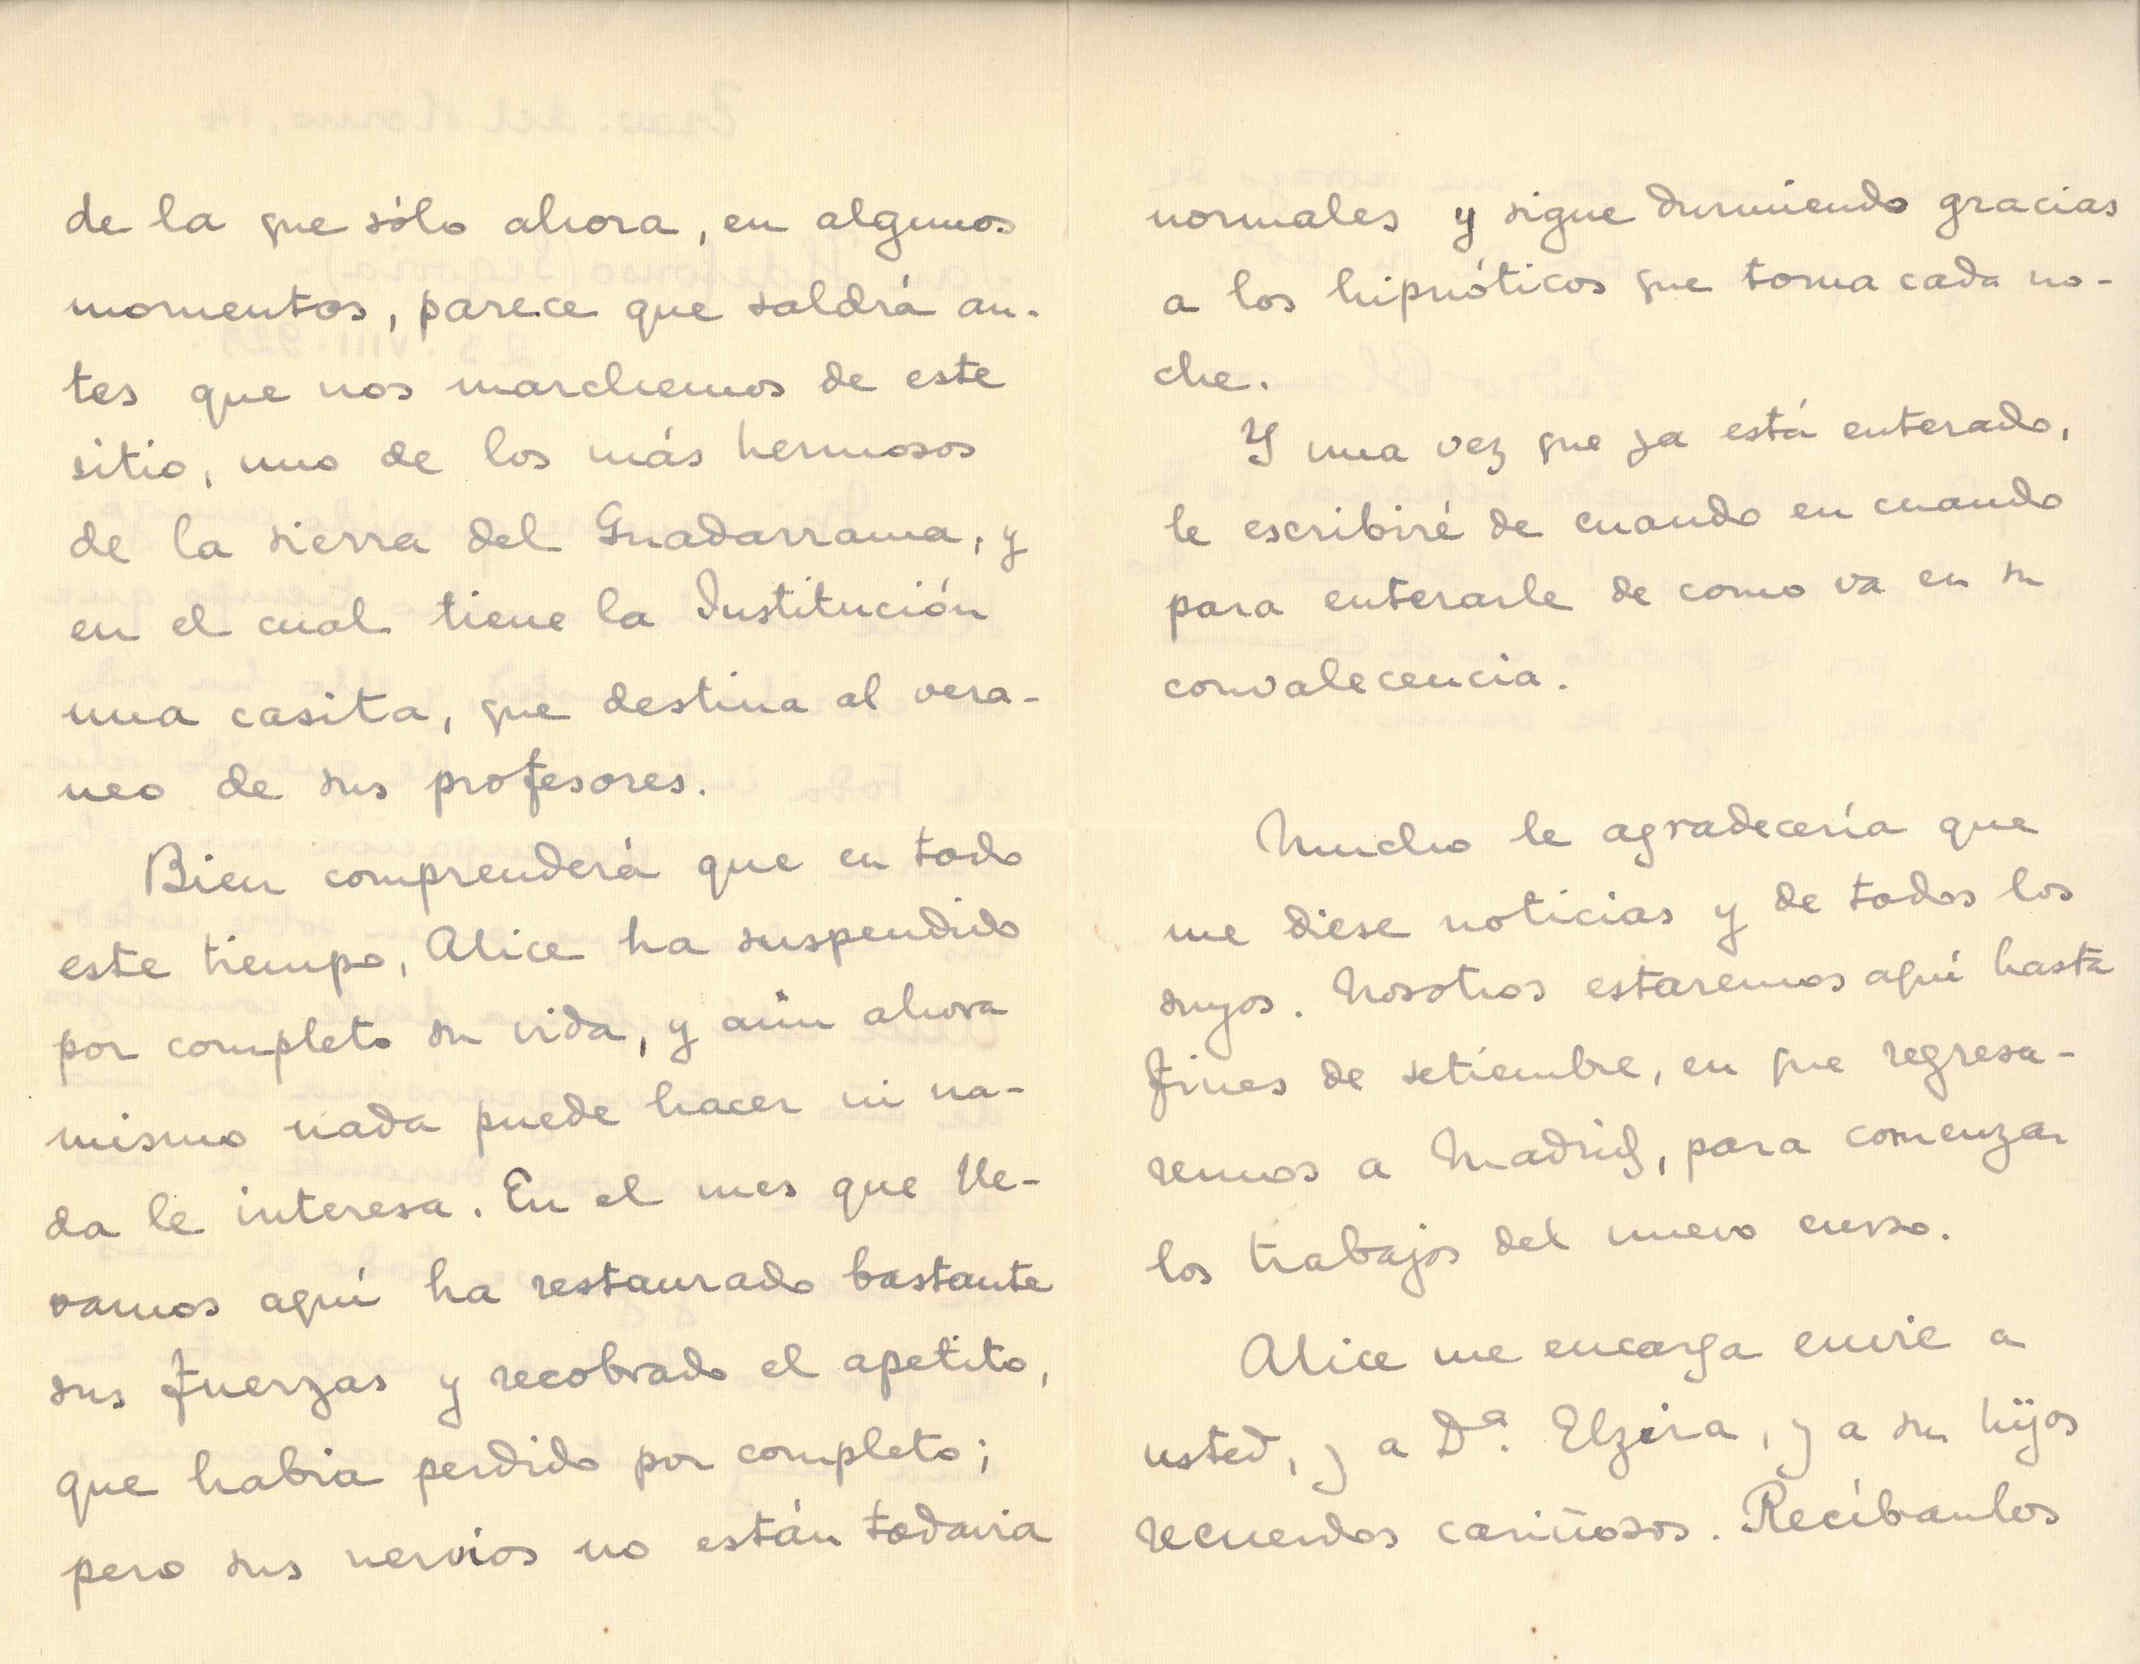 de la que sólo ahora, en algunos
momentos, parece que saldrá an-
tes que nos marchemos de este
sitio, uno de los más hermosos
de la sierra del Guadarrama, y
en el cual tiene la Institución
una casita, que destina al vera-
neo de sus profesores.
Bien comprenderá que en todo
este tiempo, Alice ha suspendido
por completo su vida, y aún ahora
mismo nada puede hacer ni na-
da le interesa. En el mes que lle-
vamos aquí ha restaurado bastante
sus fuerzas y recobrado el apetito,
que habia perdido por completo;
pero sus nervios no están todavia
normales y sigue durmiendo gracias
a los hipnóticos que toma cada no-
che.
Y una vez que ya está enterado,
le escribiré de cuando en cuando
para enterarle de como va en su
convalecencia.
Mucho le agradecería que
me diese noticias y de todos los
suyos. Nosotros estaremos aquí hasta
fines de setiembre, en que regresa-
remos a Madrid, para comenzar
los trabajos del nuevo curso.
Alice me encarga envie a
usted, y a Dª. Elzira, y a su hijos
recuerdos cariñosos. Recíbanlos